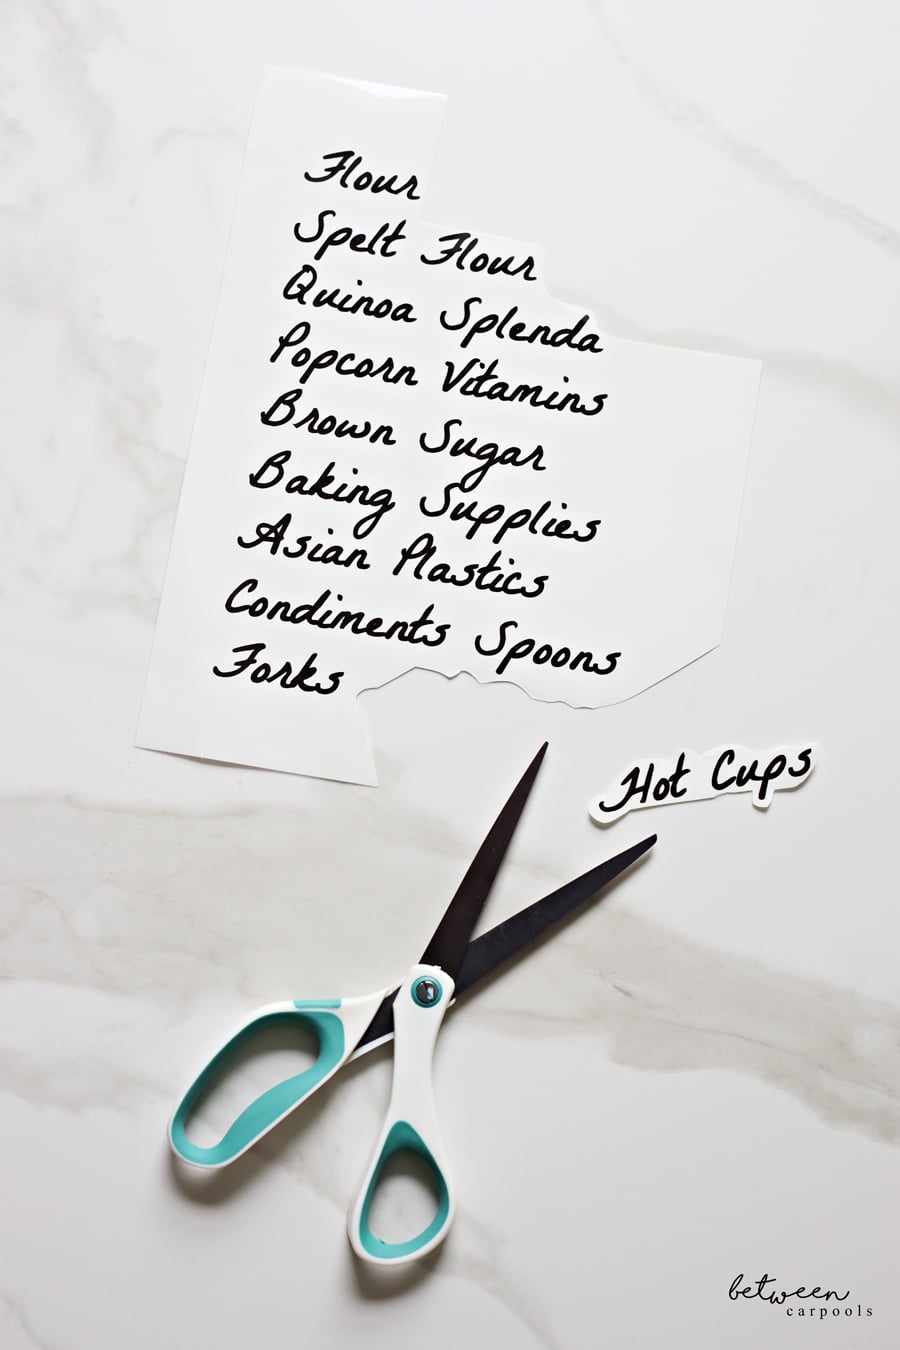 Flour
Spelt Flour
Quinoa Splenda
Popcorn Vitamins
Brown Sugar
Baking Supplies
Asian Plastics
Condiments Spoons
Forks
Hot Cups
between
carpools